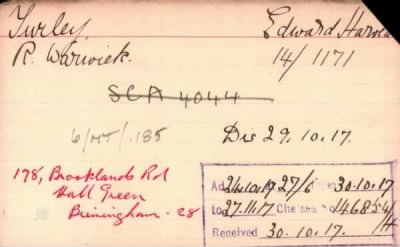 Turley, Edward Harvey
R. Warwick. 14/1171
SCA 4044
6/MT/.185 Dis 29.10.17.
178, Brooklands Rd
Hall Green
Birmingham - 28
Ad 26.10.17 27/6 30.10.17
to 27.11.17 Chelsea No 146854/
Received 30.10.17.